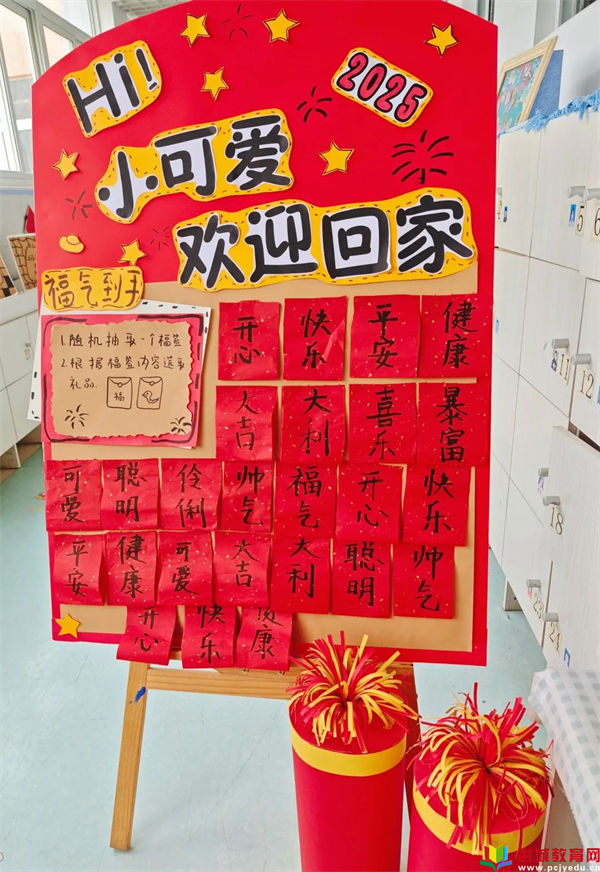 Hi!
2025
小可爱
欢迎回家
福气到手
1.随机抽取一个福签
2.根据福签内容送取
礼品
福
开心
快乐
平安
健康
大吉
大利
喜乐
暴富
可爱
聪明
伶俐
帅气
福气
开心
快乐
平安
健康
可爱
大吉
大利
聪明
帅气
开心
快乐
健康
5
6
11
12
18
23
24
教育网
www.pcjyedu.cn